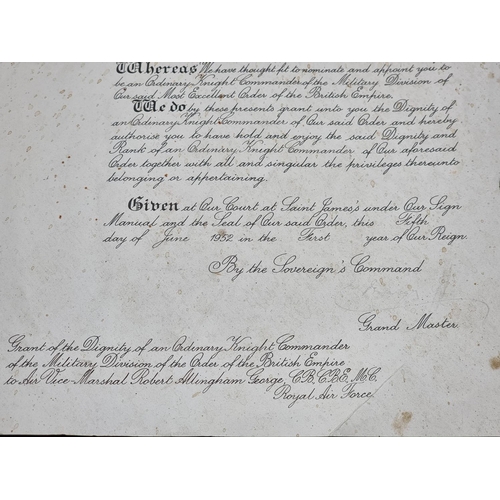 Whereas We have thought fit to nominate and appoint you to
be an Ordinary Knight Commander of the Military Division of
Our said Most Excellent Order of the British Empire.
We do by these presents grant unto you the Dignity of
an Ordinary Knight Commander of Our said Order and hereby
authorise you to have hold and enjoy the said Dignity and
Rank of an Ordinary Knight Commander of Our aforesaid
Order together with all and singular the privileges thereunto
belonging or appertaining.
Given at Our Court at Saint James's under Our Sign
Manual and the Seal of Our said Order, this Fifth
day of June 1952 in the First year of Our Reign.
By the Sovereign's Command
Grand Master.
Grant of the Dignity of an Ordinary Knight Commander
of the Military Division of the Order of the British Empire
to Air Vice-Marshal Robert Allingham George, C.B., C.B.E., M.C.
Royal Air Force.